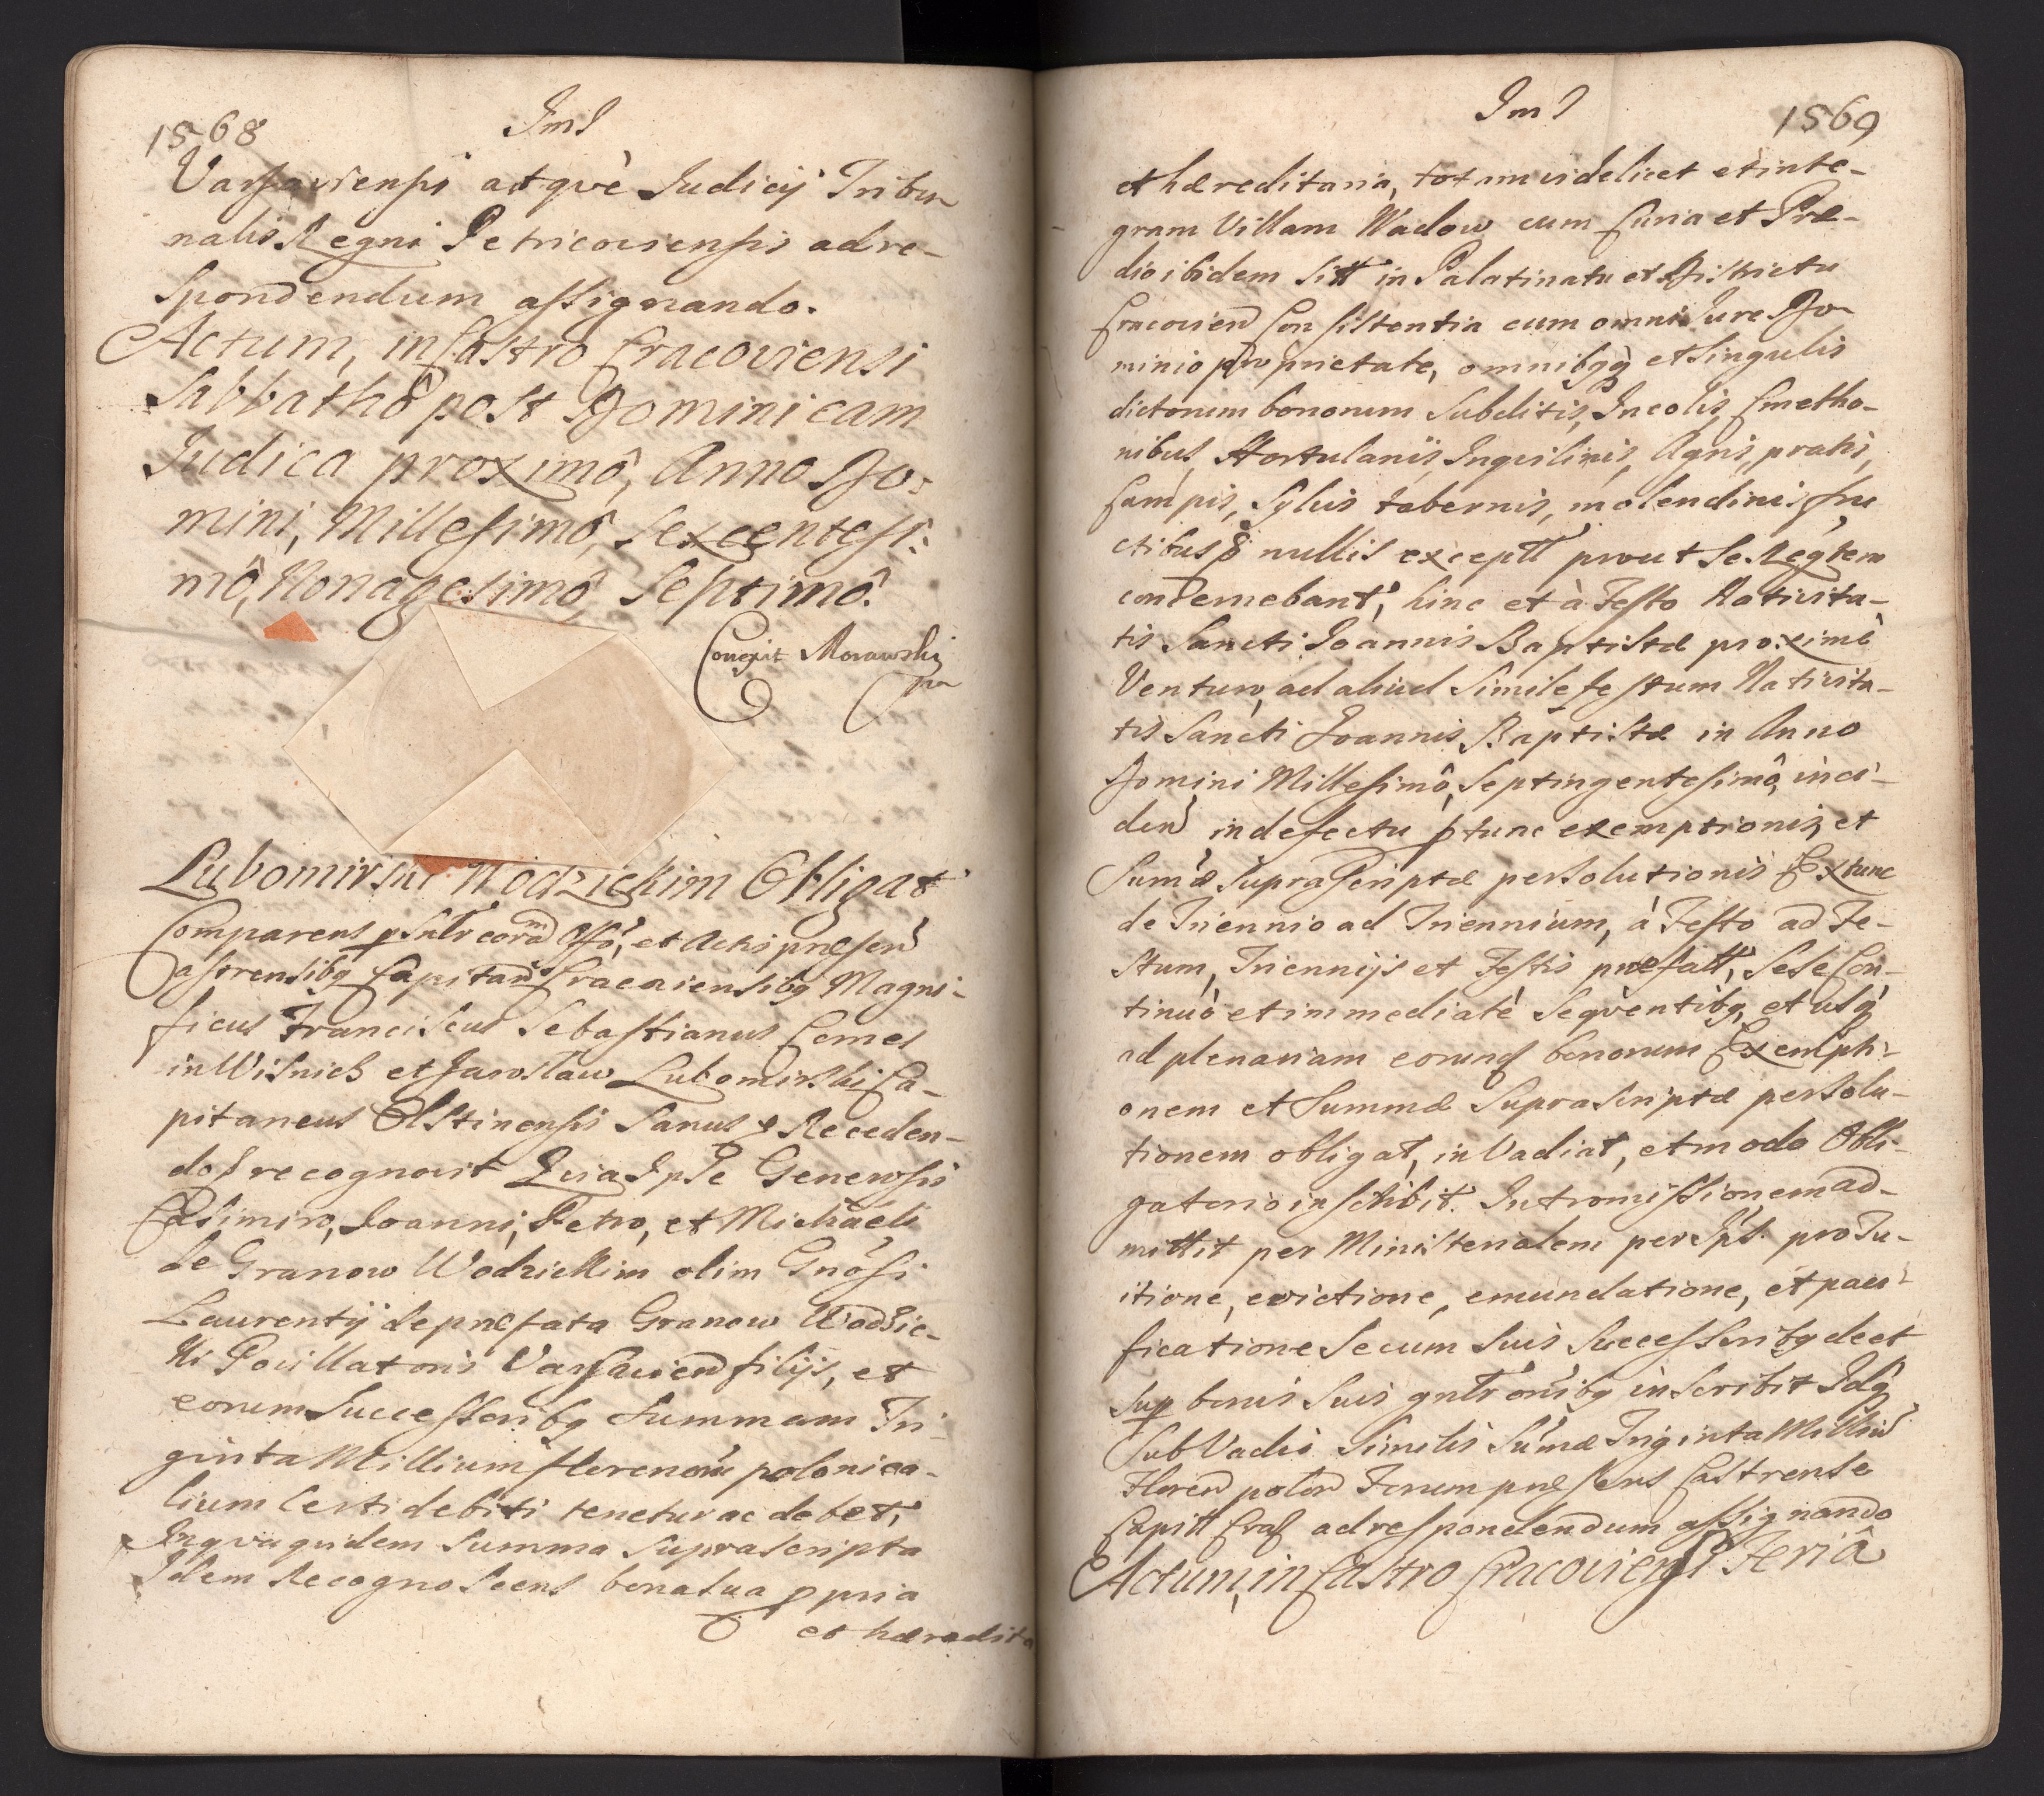 1568
JmJ
Varsaviensis atqvè Judicij Tribu
nalis Regni Petricoviensis ad re-
spondendum assignando.
Actum, in Castro Cracoviensi
Sabbathô post Dominicam
Judica proximô, Anno Do-
mini, Millesimô, Sexcentesi-
mô, Nonagesimô Septimô.
Coregit Morawski
Lubomirski Wodzickim Obligat
Comparens psntr coram Offo, et Actis præsen
Castrensibq Capitan Cracoviensibq Magni-
ficus Franciscus Sebastianus Comes
in Wisnicz et Jaroslaw Lubomirski Ca-
pitaneus Olstinensis Sanus & Receden-
do & recognovit Quia Ipse Generosis
Casimiro, Joanni, Petro, et Michaeli
de Granow Wodzickim olim Gnosi
Laurentij de præfata Granow Wodzic-
ki Pocillatoris Varsavien filijs, et
eorum Successoribq Summam Tri-
ginta Millium florenorū polonica-
lium Certi debiti tenetur ac debet,
Inqva quidem Summa Suprascripta
Idem Recognoscens bona sua ppria
et hæredita
JmJ
1569
et hæreditaria, totam videlicet et inte-
gram Villam Wadow cum Curia et Præ-
dio ibidem Sitt in Palatinatu et Districtu
Cracovien Consistentia cum omni Jure Do-
minio proprietate, omnibqq et Singulis
dictorum bonorum Subditis, Incolis, Cmetho-
nibus, Hortulanis, Inqvilinis, Agris, pratis,
Campis, Sylvis tabernis, molendinis fru
ctibus & nullis exceptt prout Se Regtem
condernebant, hinc et à Festo Nativita-
tis Sancti Joannis Baptistæ proximè
Venturo, ad aliud Simile festum Nativita-
tis Sancti Joannis Baptistæ in Anno
Domini Millesimô, Septingentesimô, inci-
den in defectu ptunc exemptionis, et
Sumæ Suprascriptæ persolutionis Extunc
de Triennio ad Triennium, à Festo ad Fe-
stum, Triennijs et Festis præfatt, Sese Con-
tinuò et immediatè Seqventibq, et usq
ad plenariam eorund bonorum Exempti-
onem et Summæ Suprascriptæ persolu-
tionem obligat, in Vadiat, et modo Obli-
gatorio inscribit. Intromissionem ad-
mittit per Ministerialem per Ips. pro Tu-
itione, evictione, emundatione, et paci-
ficatione Se cum Suis Successoribq de et
Sup bonis Suis gntr onibq inscribit Idq
Sub Vadio Similis Sumæ Triginta Milliū
Floren polon Forum præsens Castrense
Capitt Crac ad respondendum assignando
Actum, in Castro Cracoviensi Feriâ